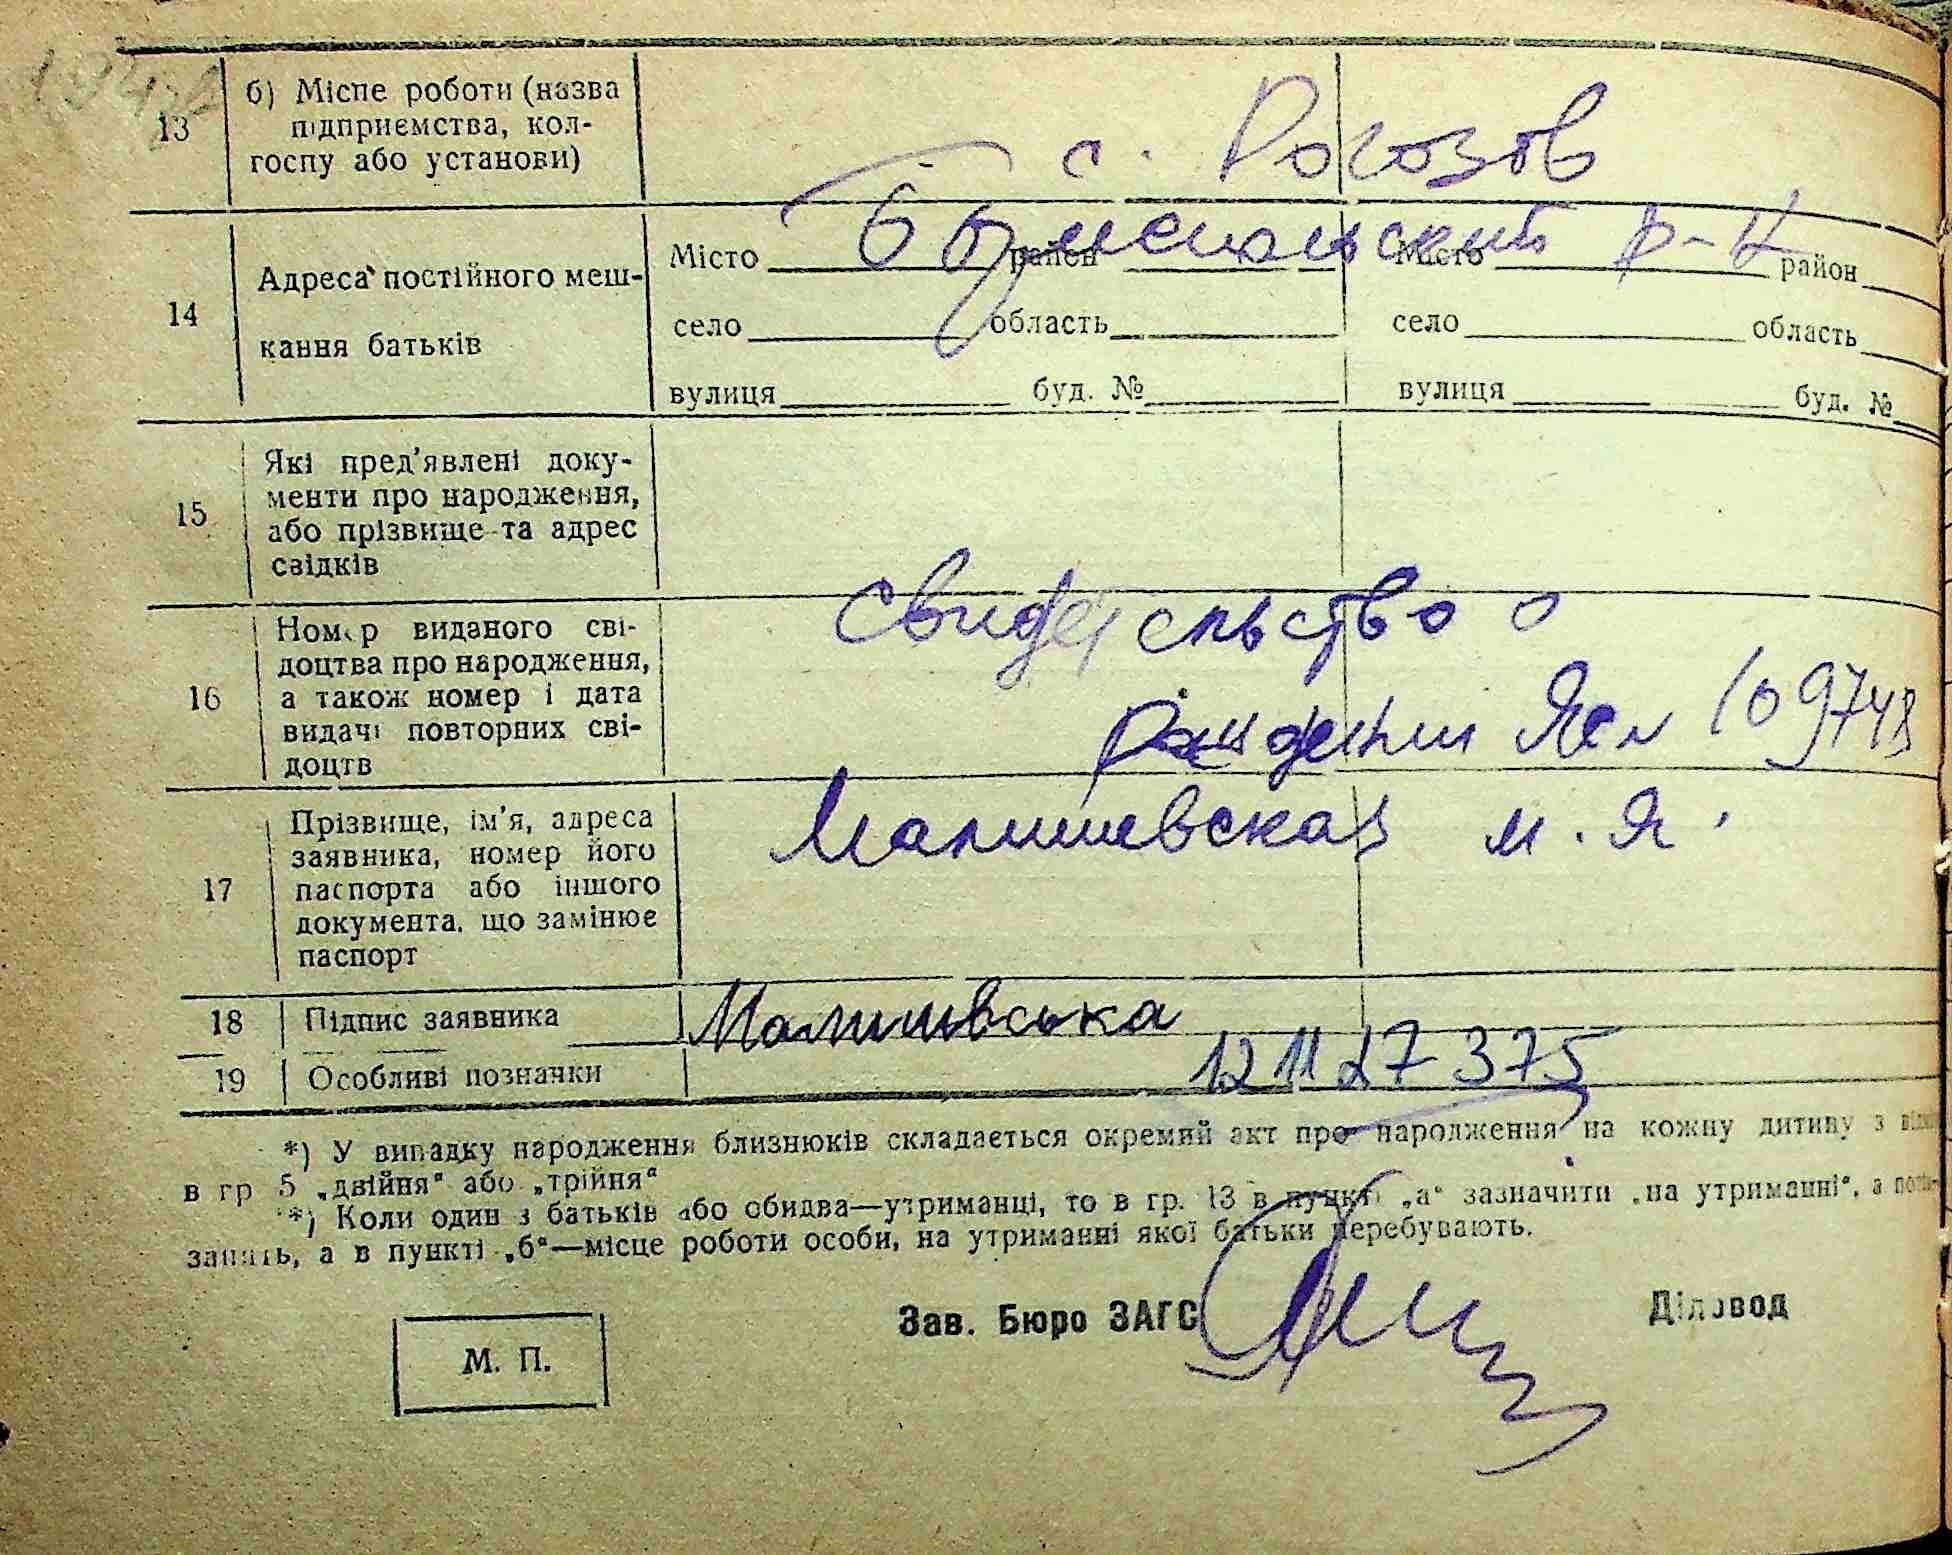 13
б) Місце роботи (назва
підприємства, кол-
госпу або установи)
с. Рогозов
Бориспольский р-н
14
Адреса постійного меш-
кання батьків
Місто район Місто район
село область село область
вулиця буд. № вулиця буд. №
15
Які пред'явлені доку-
менти про народження,
або прізвище та адрес
свідків
16
Номер виданого сві-
доцтва про народження,
а також номер і дата
видачі повторних сві-
доцтв
Свидетельство о
рождении 109748
17
Прізвище, ім'я, адреса
заявника, номер його
паспорта або іншого
документа, що замінює
паспорт
Малишевская М. Я.
18 Підпис заявника Малишевська
19 Особливі позначки 121127375
*) У випадку народження близнюків складається окремий акт про народження на кожну дитину з
в гр 5 „двійня“ або „трійня“
*) Коли один з батьків або обидва—утриманці, то в гр. 13 в пункті „а“ зазначити „на утриманні“, а
а в пункті „б“—місце роботи особи, на утриманні якої батьки перебувають.
Зав. Бюро ЗАГС Діловод
М. П.